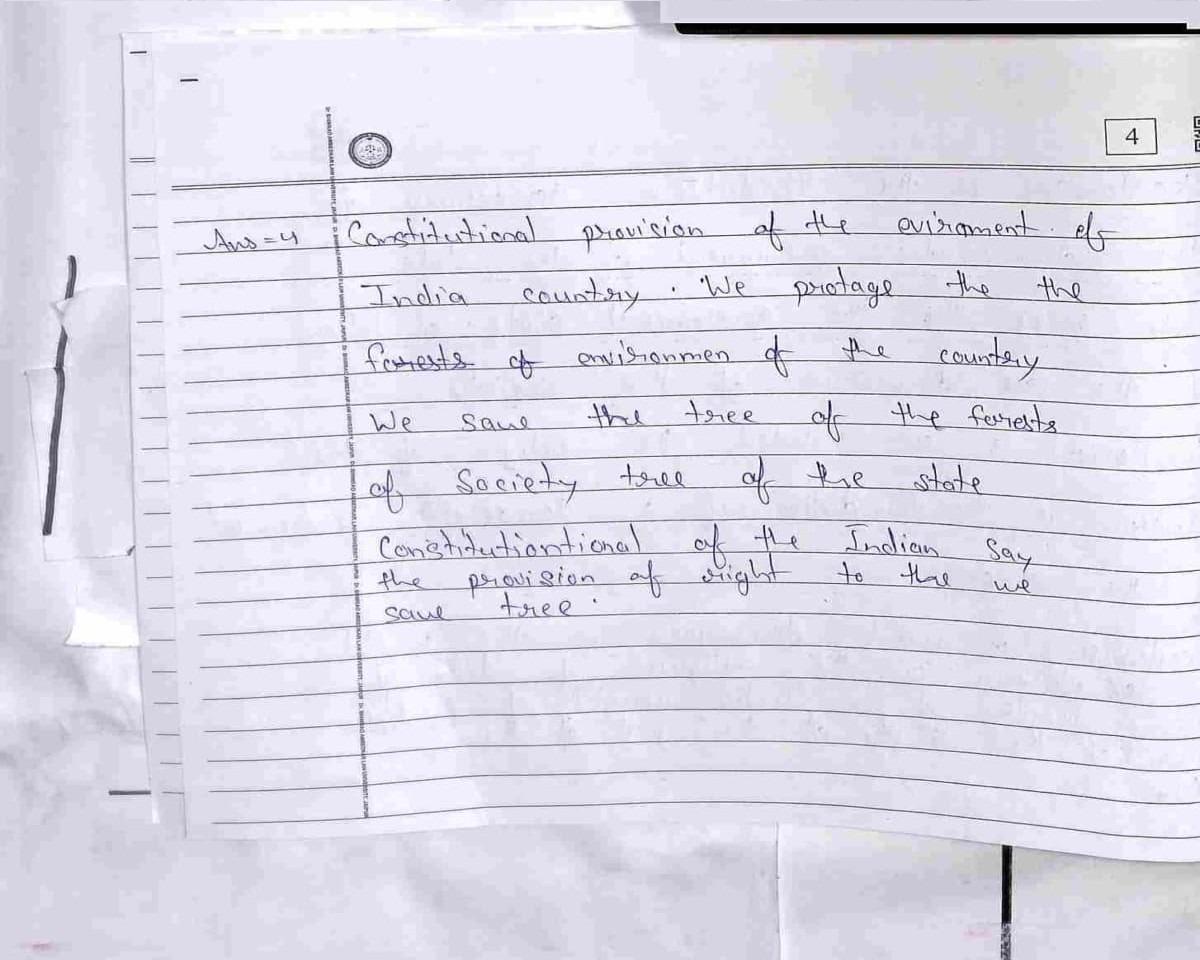 4
Ans = 4 Constitutional provision of the evironment of
India country. We protage the the
forests of environmen of the country
We save the tree of the forests
of Society tree of the state
Constitutiontional of the Indian say
the provision of right to the we
save tree.